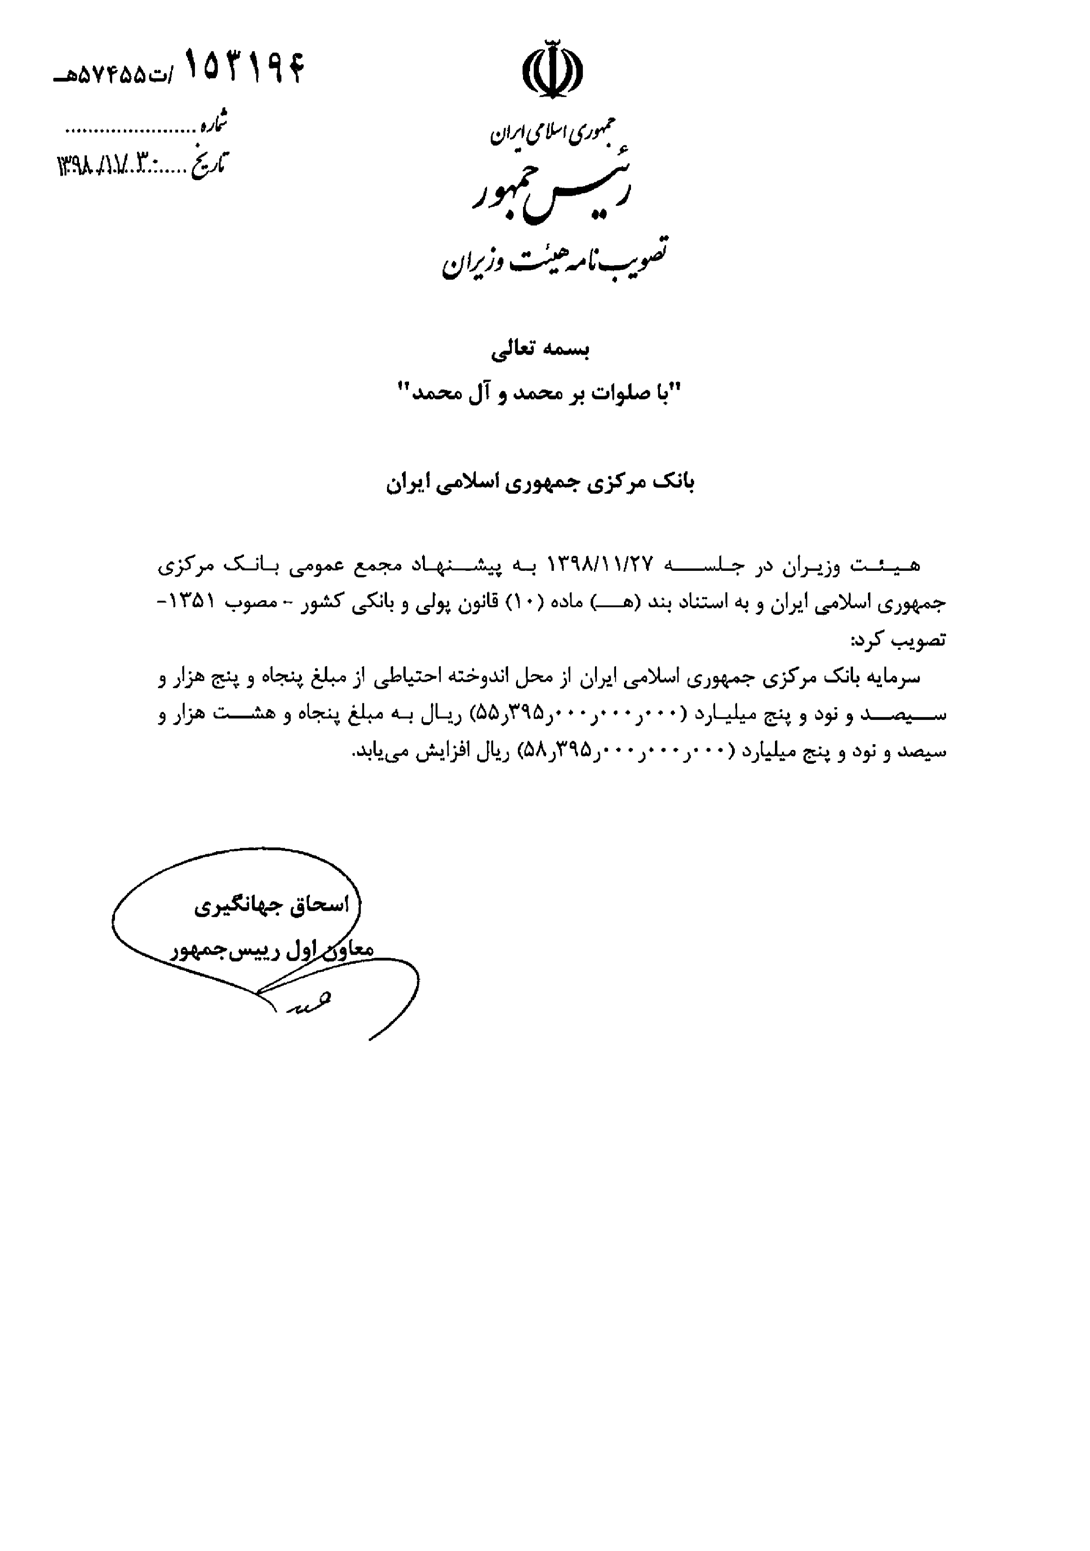 ۱۵۳۱۹۴/ت۵۷۴۵۵هـ
شماره ......................
تاریخ ......۱۳۹۸/۱۱/۳۰
جمهوری اسلامی ایران
رئیس جمهور
تصویب نامه هیئت وزیران
بسمه تعالی
"با صلوات بر محمد و آل محمد"
بانک مرکزی جمهوری اسلامی ایران
هیئت وزیران در جلسه ۱۳۹۸/۱۱/۲۷ به پیشنهاد مجمع عمومی بانک مرکزی
جمهوری اسلامی ایران و به استناد بند (هـ) ماده (۱۰) قانون پولی و بانکی کشور - مصوب ۱۳۵۱-
تصویب کرد:
سرمایه بانک مرکزی جمهوری اسلامی ایران از محل اندوخته احتیاطی از مبلغ پنجاه و پنج هزار و
سیصد و نود و پنج میلیارد (۵۵ر۳۹۵ر۰۰۰ر۰۰۰ر۰۰۰) ریال به مبلغ پنجاه و هشت هزار و
سیصد و نود و پنج میلیارد (۵۸ر۳۹۵ر۰۰۰ر۰۰۰ر۰۰۰) ریال افزایش می‌یابد.
اسحاق جهانگیری
معاون اول رییس‌جمهور